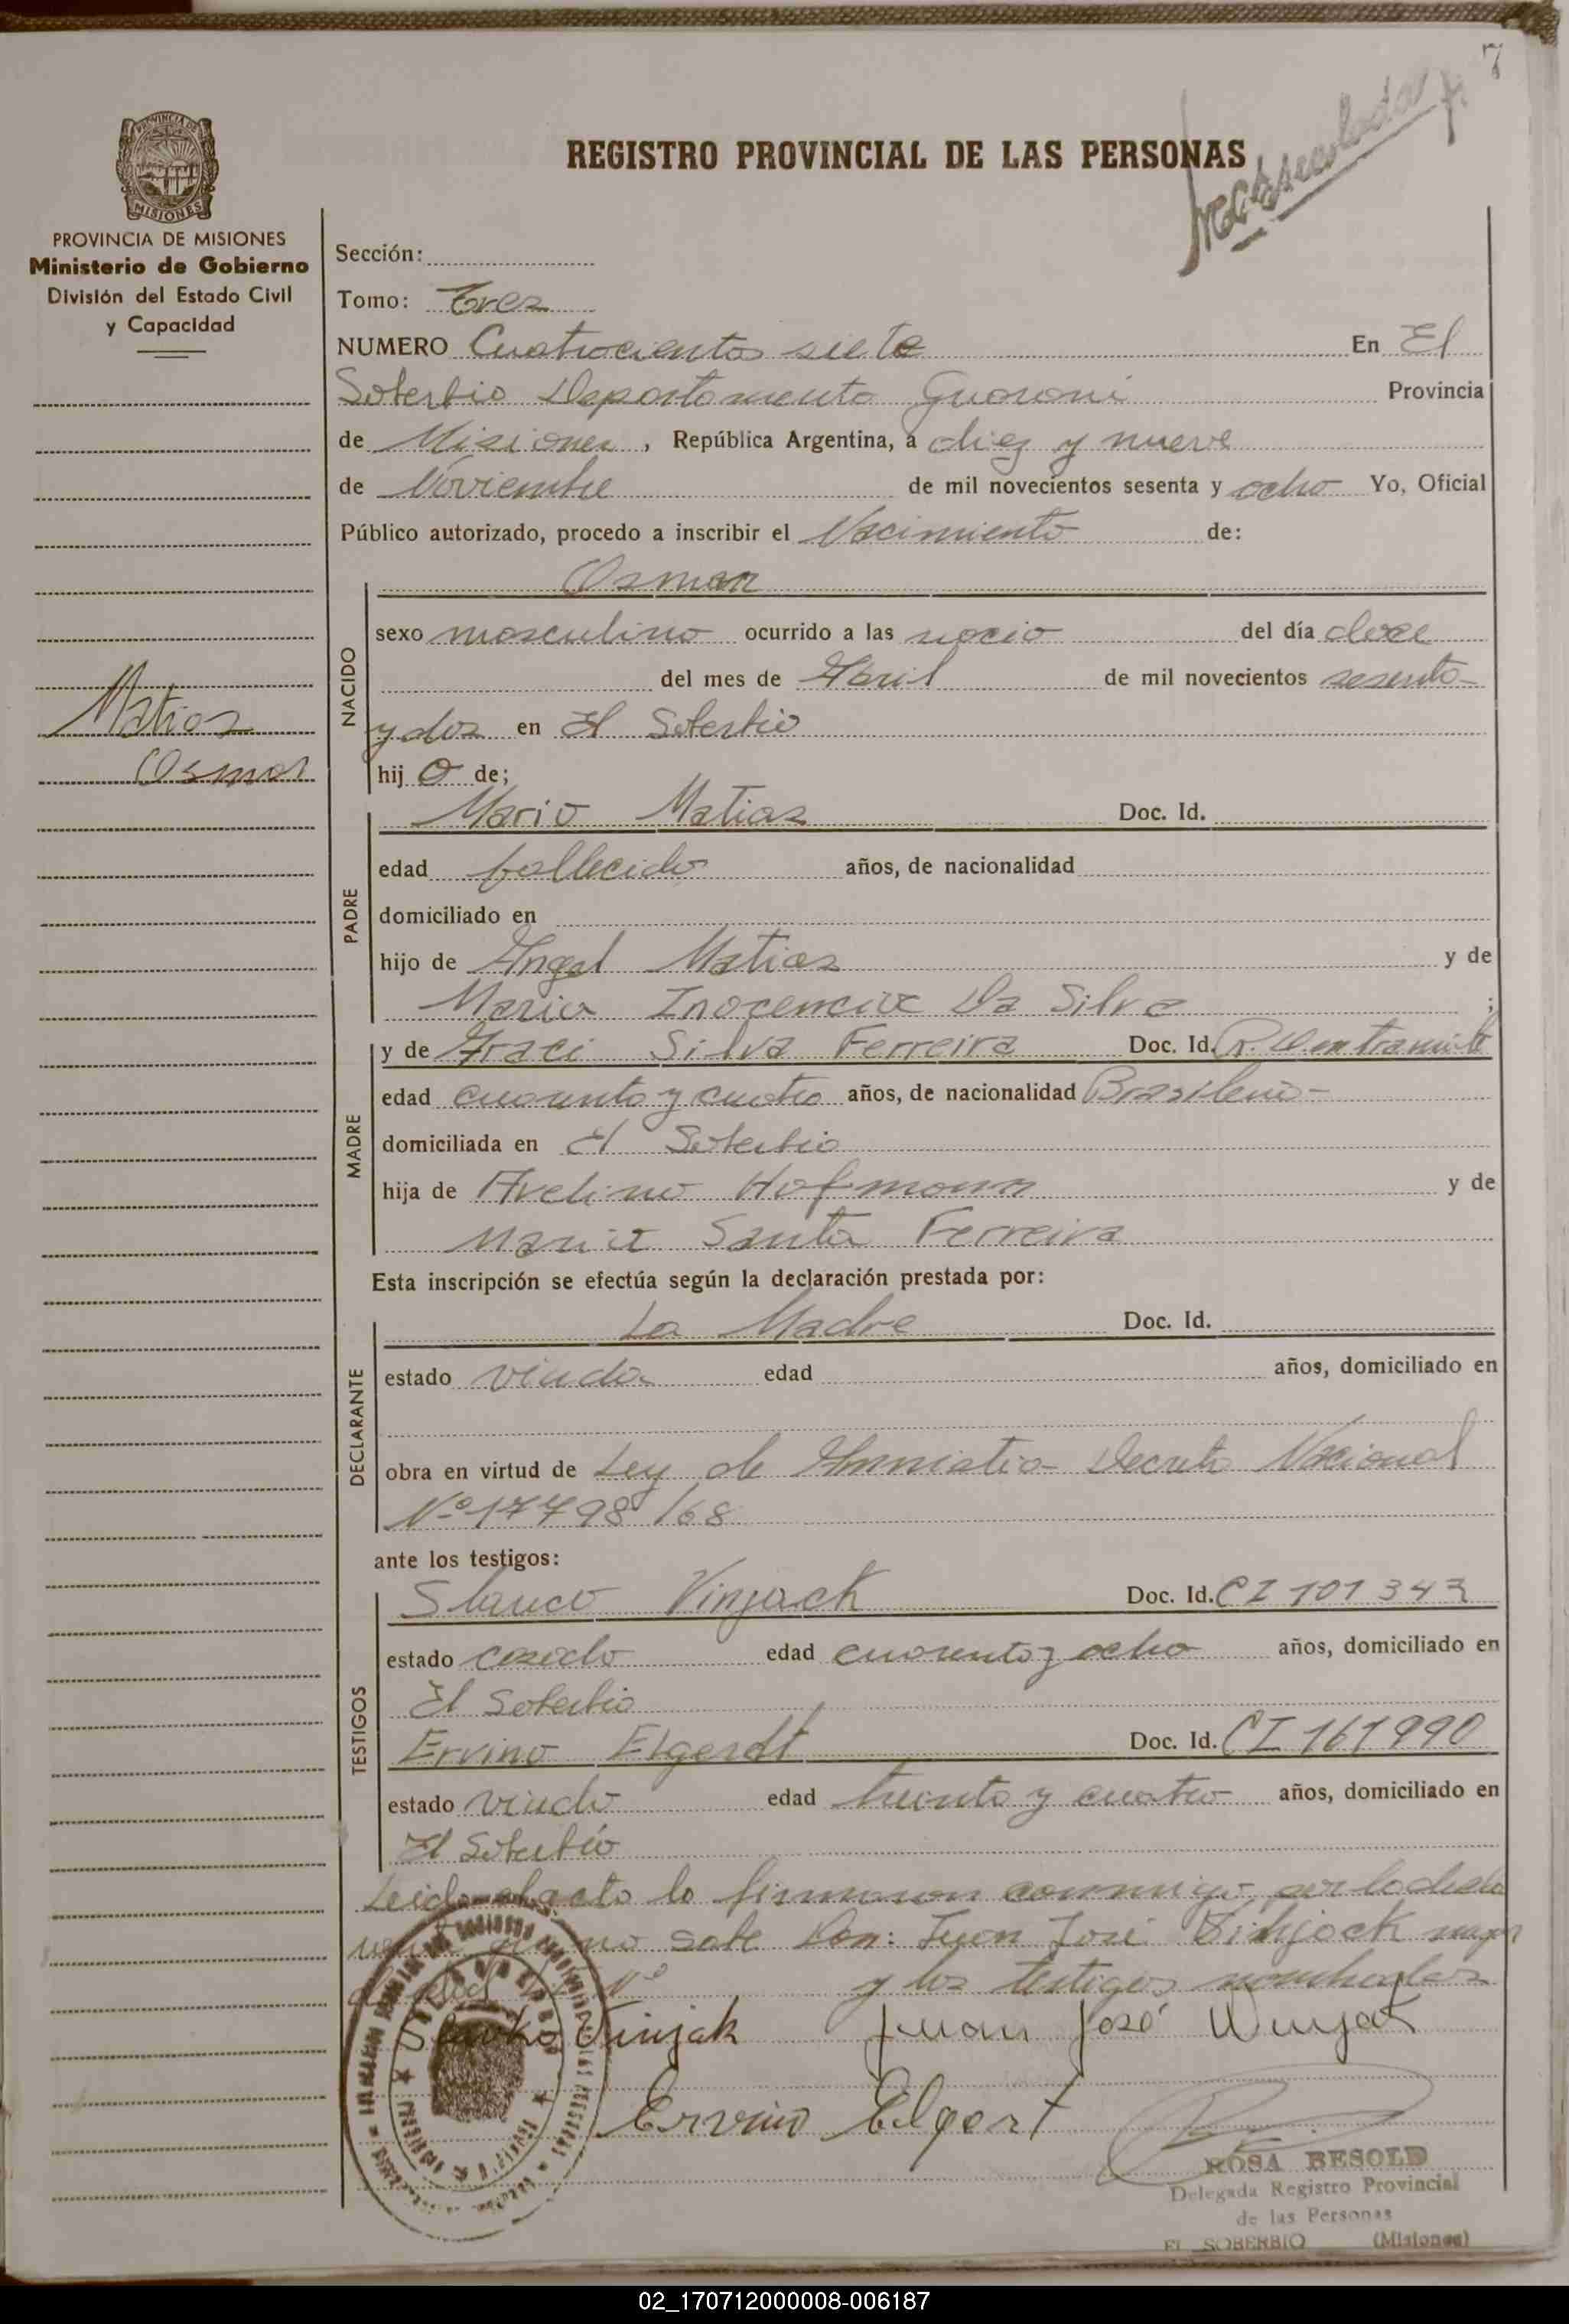 7
REGISTRO PROVINCIAL DE LAS PERSONAS
PROVINCIA DE MISIONES
Ministerio de Gobierno
División del Estado Civil
y Capacidad
Sección:
Tomo: Tres
NUMERO Cuatrocientos siete En El
Soberbio Departamento Guarani Provincia
de Misiones, República Argentina, a diez y nueve
de Noviembre de mil novecientos sesenta y ocho Yo, Oficial
Público autorizado, procedo a inscribir el Nacimiento de:
Osmar
NACIDO
sexo masculino ocurrido a las del día doce
del mes de Abril de mil novecientos sesenta
y dos en El Soberbio
Matias
Osmar
hij o de;
PADRE
Mario Matias Doc. Id.
edad fallecido años, de nacionalidad
domiciliado en
hijo de Angel Matias y de
Maria Inocencia Da Silva ;
MADRE
y de Iraci Silva Ferreira Doc. Id. en tramite
edad cuarenta y cuatro años, de nacionalidad Brasilena
domiciliada en El Soberbio
hija de Avelino Hofmann y de
Maria Santa Ferreira
Esta inscripción se efectúa según la declaración prestada por:
DECLARANTE
La Madre Doc. Id.
estado viuda edad años, domiciliado en
obra en virtud de Ley de Amnistia Decreto Nacional
Nº 17798/68
ante los testigos:
TESTIGOS
Slauco Vinjack Doc. Id. CI 101343
estado casado edad cuarenta y ocho años, domiciliado en
El Soberbio
Ervino Elgerdt Doc. Id. CI 161990
estado viudo edad treinta y cuatro años, domiciliado en
El Soberbio
Leida el acta la firmaron conmigo, por la decla
no sabe Don: Juan José Vinjack mayor
de edad Nº y los testigos nombrados
Slavko Vinjak Juan José Vinjak
Ervino Elgert
ROSA BESOLD
Delegada Registro Provincial
de las Personas
EL SOBERBIO (Misiones)
02_170712000008-006187